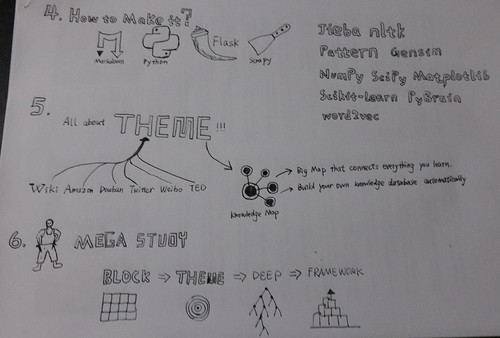 4. How to Make it?
Markdown Python Flask Scrapy
Jieba nltk
Pattern Gensim
NumPy SciPy Matplotlib
Scikit-Learn PyBrain
word2vec
5.
All about THEME!!!
Wiki Amazon Douban Twitter Weibo TED
Knowledge Map
Big Map that connects everything you learn.
Build your own knowledge database automatically
6. MEGA STUDY
BLOCK ⇒ THEME ⇒ DEEP ⇒ FRAMEWORK